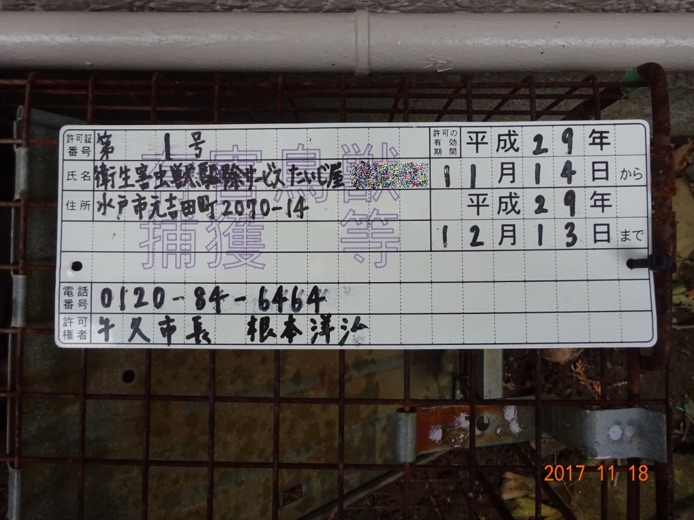 許可証番号 第 1号
許可の有効期間 平成29年11月14日から平成29年12月13日まで
氏名 衛生害虫獣駆除サービスたいじ屋
住所 水戸市元吉田町2070-14
有害鳥獣捕獲等
電話番号 0120-84-6464
許可権者 牛久市長 根本洋治
2017 11 18